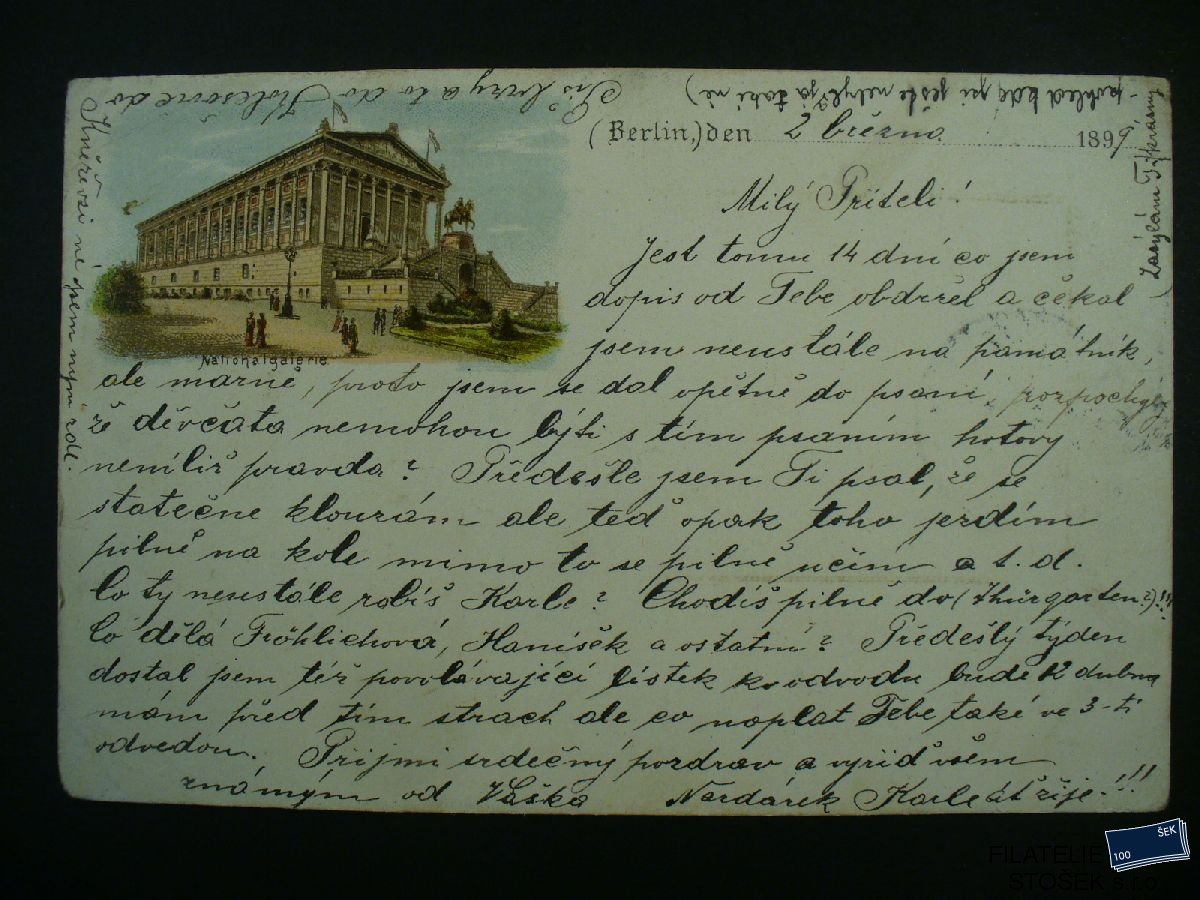 (Berlin,) den 2 března 1899
Milý Příteli!
Jest tomu 14 dní co jsem
dopis od Tebe obdržel a čekal
jsem neustále na památník,
Nationalgalerie
ale marně, proto jsem se dal opětně do psaní,
že děvčata nemohou býti s tím psaním hotovy
neníliž pravda? Předešle jsem Ti psal, že se
statečně klouzám ale teď opak toho jezdím
pilně na kole mimo to se pilně učím a t. d.
Co ty neustále robíš Karle? Chodíš pilně do (Thürgarten?)!!!
Co dělá Fröhlichová, Haníšek a ostatní? Předešlý týden
dostal jsem též povolávající lístek k odvodu bude 12 dubna
mám před tím strach ale co naplat Tebe také ve 3-tí
odvedou. Přijmi srdečný pozdrav a vyřiď všem
známým od Vaška Nazdárek Karle ať žije!!!
Zasýlám Ti krásný
pohled kde jsi ještě nebyl
a to do Kolešovic do
Kněževsi né jsem nyní
100 ŠEK
FILATELIE
STOŠEK s.r.o.